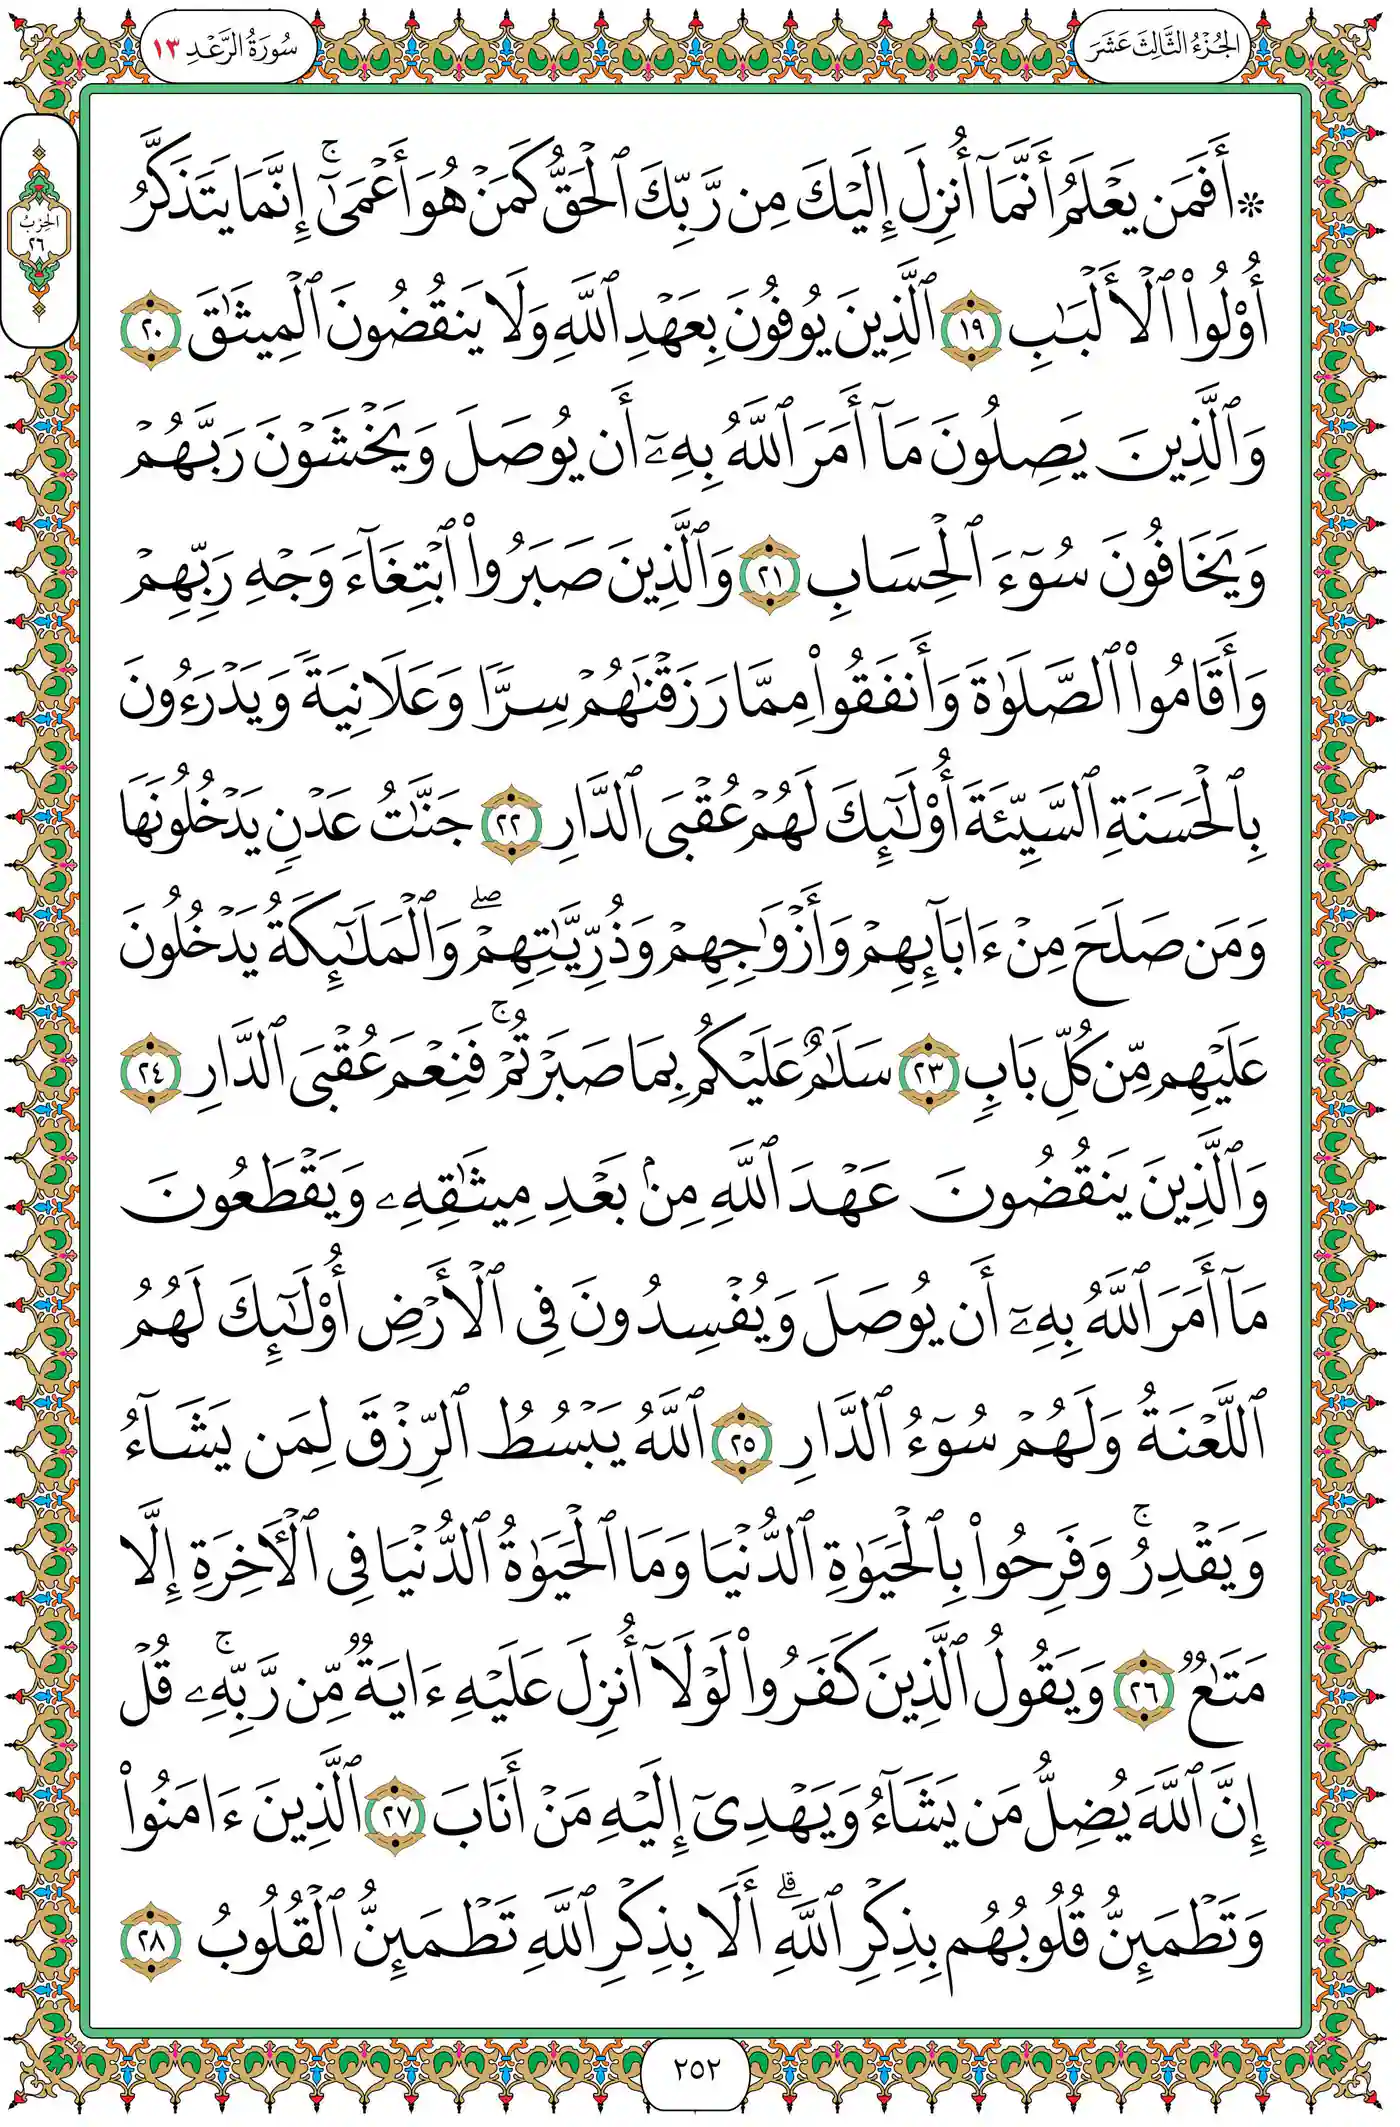 الجُزْءُ الثَّالِثَ عَشَرَ
سُورَةُ الرَّعْدِ ١٣
الحِزْبُ
٢٦
۞ أَفَمَن يَعْلَمُ أَنَّمَآ أُنزِلَ إِلَيْكَ مِن رَّبِّكَ ٱلْحَقُّ كَمَنْ هُوَ أَعْمَىٰٓ ۚ إِنَّمَا يَتَذَكَّرُ
أُو۟لُوا۟ ٱلْأَلْبَـٰبِ ١٩ ٱلَّذِينَ يُوفُونَ بِعَهْدِ ٱللَّهِ وَلَا يَنقُضُونَ ٱلْمِيثَـٰقَ ٢٠
وَٱلَّذِينَ يَصِلُونَ مَآ أَمَرَ ٱللَّهُ بِهِۦٓ أَن يُوصَلَ وَيَخْشَوْنَ رَبَّهُمْ
وَيَخَافُونَ سُوٓءَ ٱلْحِسَابِ ٢١ وَٱلَّذِينَ صَبَرُوا۟ ٱبْتِغَآءَ وَجْهِ رَبِّهِمْ
وَأَقَامُوا۟ ٱلصَّلَوٰةَ وَأَنفَقُوا۟ مِمَّا رَزَقْنَـٰهُمْ سِرًّا وَعَلَانِيَةً وَيَدْرَءُونَ
بِٱلْحَسَنَةِ ٱلسَّيِّئَةَ أُو۟لَـٰٓئِكَ لَهُمْ عُقْبَى ٱلدَّارِ ٢٢ جَنَّـٰتُ عَدْنٍ يَدْخُلُونَهَا
وَمَن صَلَحَ مِنْ ءَابَآئِهِمْ وَأَزْوَٰجِهِمْ وَذُرِّيَّـٰتِهِمْ ۖ وَٱلْمَلَـٰٓئِكَةُ يَدْخُلُونَ
عَلَيْهِم مِّن كُلِّ بَابٍ ٢٣ سَلَـٰمٌ عَلَيْكُم بِمَا صَبَرْتُمْ ۚ فَنِعْمَ عُقْبَى ٱلدَّارِ ٢٤
وَٱلَّذِينَ يَنقُضُونَ عَهْدَ ٱللَّهِ مِنۢ بَعْدِ مِيثَـٰقِهِۦ وَيَقْطَعُونَ
مَآ أَمَرَ ٱللَّهُ بِهِۦٓ أَن يُوصَلَ وَيُفْسِدُونَ فِى ٱلْأَرْضِ أُو۟لَـٰٓئِكَ لَهُمُ
ٱللَّعْنَةُ وَلَهُمْ سُوٓءُ ٱلدَّارِ ٢٥ ٱللَّهُ يَبْسُطُ ٱلرِّزْقَ لِمَن يَشَآءُ
وَيَقْدِرُ ۚ وَفَرِحُوا۟ بِٱلْحَيَوٰةِ ٱلدُّنْيَا وَمَا ٱلْحَيَوٰةُ ٱلدُّنْيَا فِى ٱلْـَٔاخِرَةِ إِلَّا
مَتَـٰعٌ ٢٦ وَيَقُولُ ٱلَّذِينَ كَفَرُوا۟ لَوْلَآ أُنزِلَ عَلَيْهِ ءَايَةٌ مِّن رَّبِّهِۦ ۗ قُلْ
إِنَّ ٱللَّهَ يُضِلُّ مَن يَشَآءُ وَيَهْدِىٓ إِلَيْهِ مَنْ أَنَابَ ٢٧ ٱلَّذِينَ ءَامَنُوا۟
وَتَطْمَئِنُّ قُلُوبُهُم بِذِكْرِ ٱللَّهِ ۗ أَلَا بِذِكْرِ ٱللَّهِ تَطْمَئِنُّ ٱلْقُلُوبُ ٢٨
٢٥٢